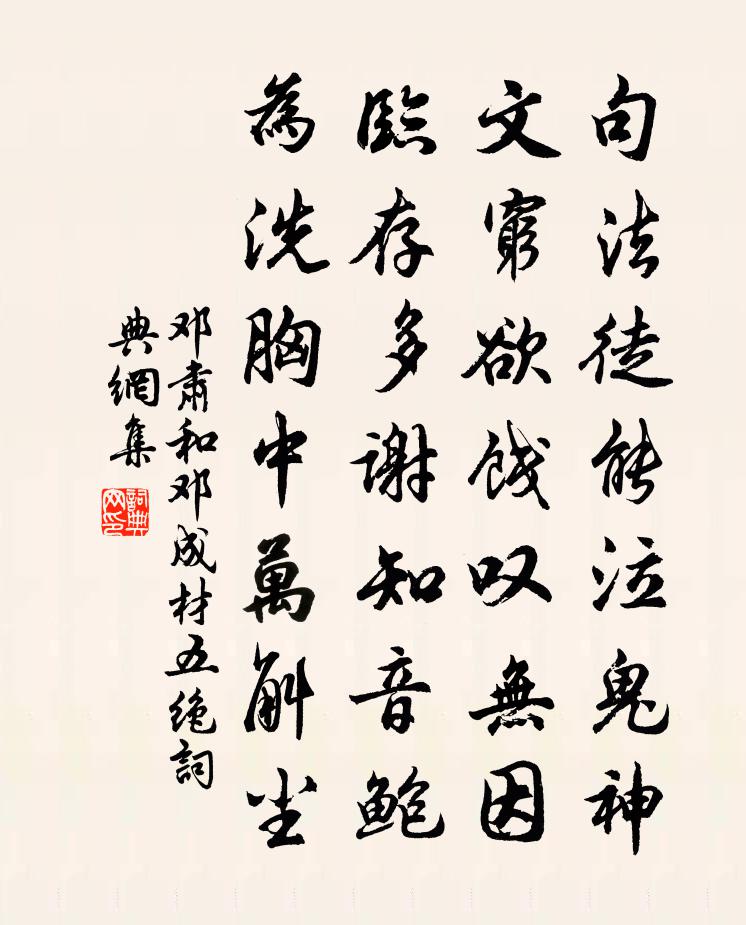 句法徒能泣鬼神
文窮欲餞叹無因
臨存多謝知音鲍
為洗胸中萬斛尘
邓肃和邓成材五绝詞
典網集
詞典网印